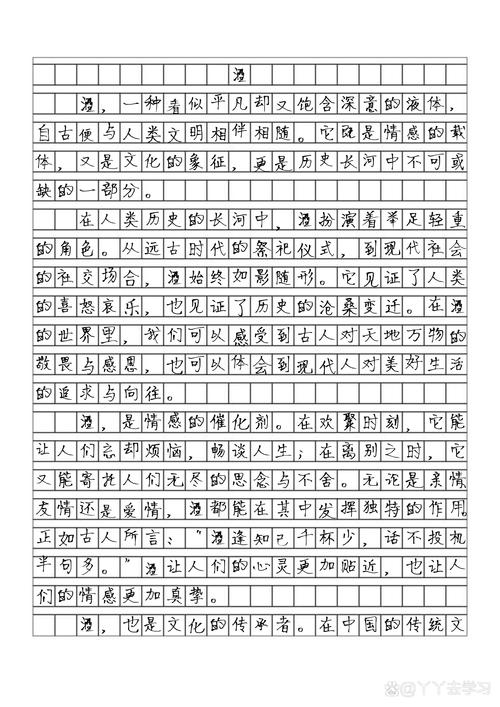 酒
酒，一种看似平凡却又饱含深意的液体，
自古便与人类文明相伴相随。它既是情感的载
体，又是文化的象征，更是历史长河中不可或
缺的一部分。
在人类历史的长河中，酒扮演着举足轻重
的角色。从远古时代的祭祀仪式，到现代社会
的社交场合，酒始终如影随形。它见证了人类
的喜怒哀乐，也见证了历史的沧桑变迁。在酒
的世界里，我们可以感受到古人对天地万物的
敬畏与感恩，也可以体会到现代人对美好生活
的追求与向往。
酒，是情感的催化剂。在欢聚时刻，它能
让人们忘却烦恼，畅谈人生；在离别之时，它
又能寄托人们无尽的思念与不舍。无论是亲情
友情还是爱情，酒都能在其中发挥独特的作用
正如古人所言：“酒逢知己千杯少，话不投机
半句多。”酒让人们的心灵更加贴近，也让人
们的情感更加真挚。
酒，也是文化的传承者。在中国的传统文
@丫丫去学习